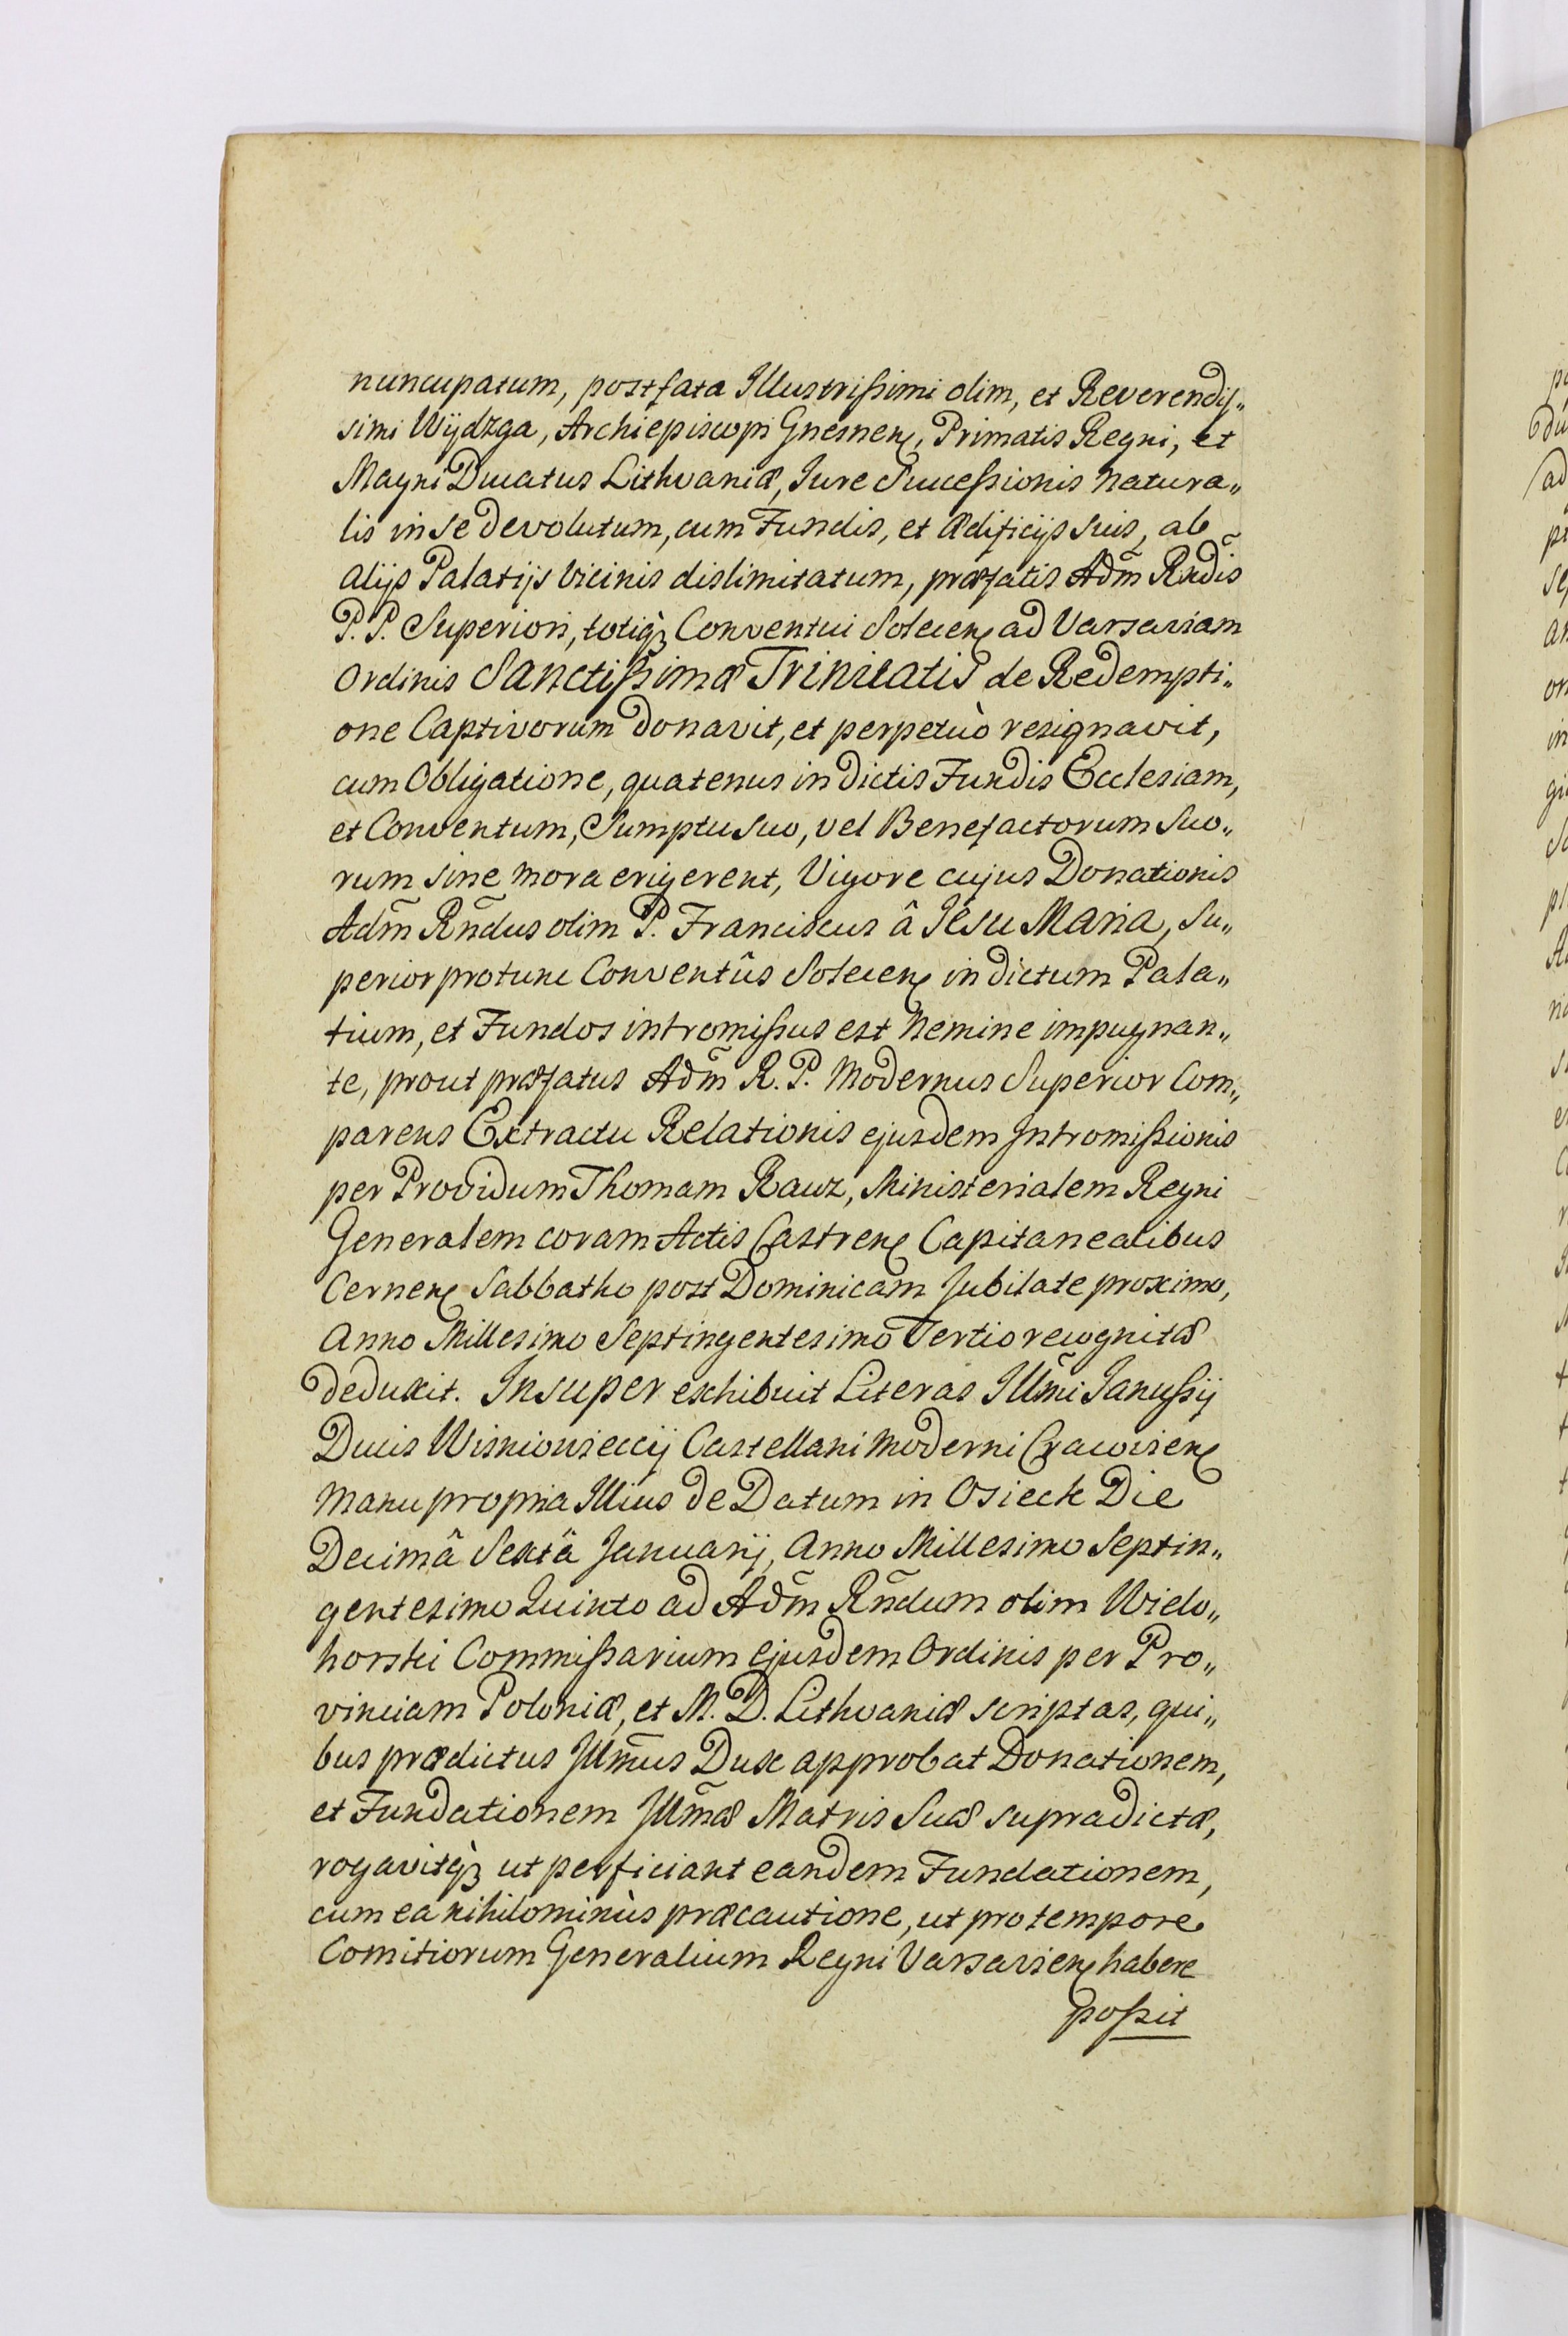 nuncupatum, post fata Illustrißimi olim, et Reverendis„
simi Wÿdzga, Archiepiscopi Gnesnen, Primatis Regni, et
Magni Ducatus Lithvaniæ, Iure Succeßionis natura„
lis in se devolutum, cum Fundis, et ædificijs suis, ab
alijs Palatijs vicinis dislimitatum, præfatis Adm̃ Rndis̃
P. P. Superiori, totiq̀ꝫ Conventui Solecen ad Varsaviam
Ordinis Sanctißimæ Trinitatis de Redempti„
one Captivorum donavit, et perpetuò resignavit,
cum Obligatione, quatenus in dictis Fundis Ecclesiam,
et Conventum, Sumptu suo, vel Benefactorum suo„
rum sine mora erigerent, Vigore cujus Donationis
Adm̃ Rñdus olim P. Franciscus â Iesu Maria, Su„
perior protunc Conventûs Solecen in dictum Pala„
tium, et Fundos intromißus est nemine impugnan„
te, prout præfatus Adm̃ R. P. Modernus Superior Com„
parens Extractu Relationis ejusdem Intromißionis
per Providum Thomam Rauz, Ministerialem Regni
Generalem coram Actis Castren Capitanealibus
Cernen Sabbatho post Dominicam Jubilate proximo,
Anno Millesimo Septingentesimo Tertio recognitæ
deduxit. Insuper exhibuit Literas Illm̃i Ianußij
Ducis Wisniowieccij Castellani moderni Cracovien
manu propria Illius de Datum in Osieck Die
Decimâ Sextâ Januarij, Anno Millesimo Septin„
gentesimo Quinto ad Adm̃ Rñdum olim Wielo„
horski Commißarium ejusdem Ordinis per Pro„
vinciam Poloniæ, et M. D. Lithvaniæ scriptas, qui„
bus prædictus Illm̃us Dux approbat Donationem,
et Fundationem Illm̃æ Matris Suæ supradictæ,
rogavitq̀ꝫ ut perficiant eandem Fundationem,
cum ea nihilominùs præcautione, ut pro tempore
Comitiorum Generalium Regni Varsavien habere
poßit